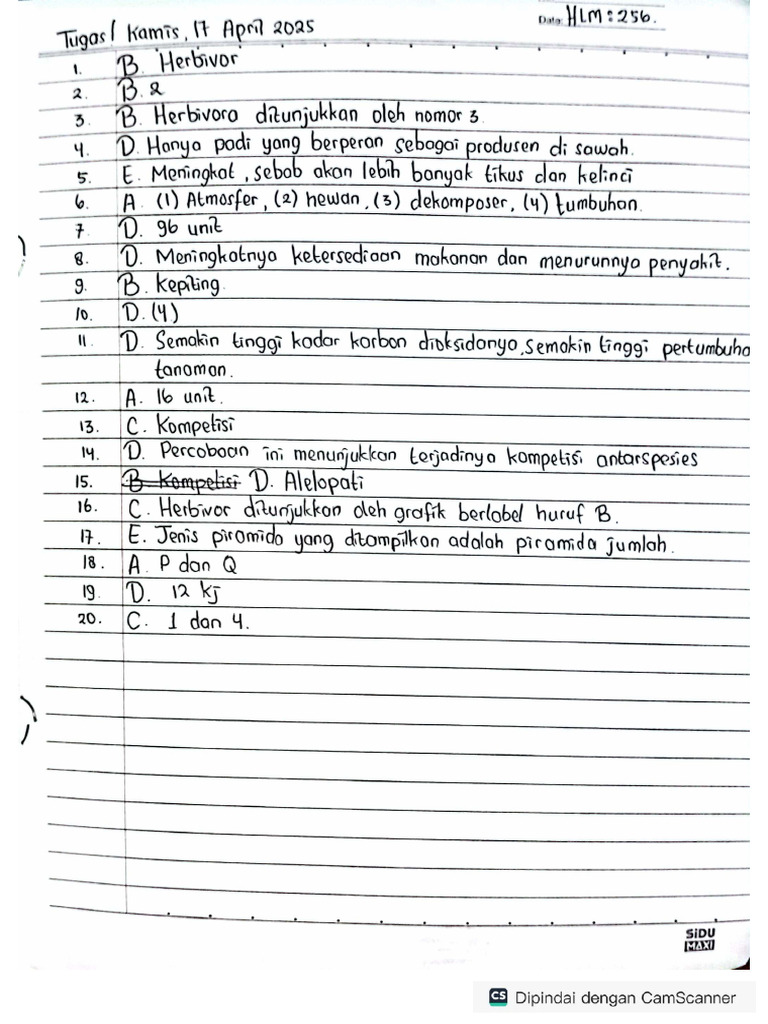 Tugas / Kamis, 17 April 2025
Date: HLM : 256.
1. B. Herbivor
2. B. 2
3. B. Herbivora ditunjukkan oleh nomor 3.
4. D. Hanya padi yang berperan sebagai produsen di sawah.
5. E. Meningkat, sebab akan lebih banyak tikus dan kelinci
6. A. (1) Atmosfer, (2) hewan, (3) dekomposer, (4) tumbuhan.
7. D. 96 unit
8. D. Meningkatnya ketersediaan makanan dan menurunnya penyakit.
9. B. Kepiting.
10. D. (4)
11. D. Semakin tinggi kadar karbon dioksidanya, semakin tinggi pertumbuha
tanaman.
12. A. 16 unit.
13. C. Kompetisi
14. D. Percobaan ini menunjukkan terjadinya kompetisi antarspesies
15. B Kompetisi D. Alelopati
16. C. Herbivor ditunjukkan oleh grafik berlabel huruf B.
17. E. Jenis piramida yang ditampilkan adalah piramida jumlah.
18. A. P dan Q
19. D. 12 kj
20. C. 1 dan 4.
SiDU
MAXI
CS Dipindai dengan CamScanner